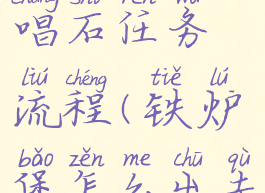 chàng shí rèn wù
唱石任务
liú chéng tiě lú
流程(铁炉
bǎo zěn me chū qù
堡怎么出去